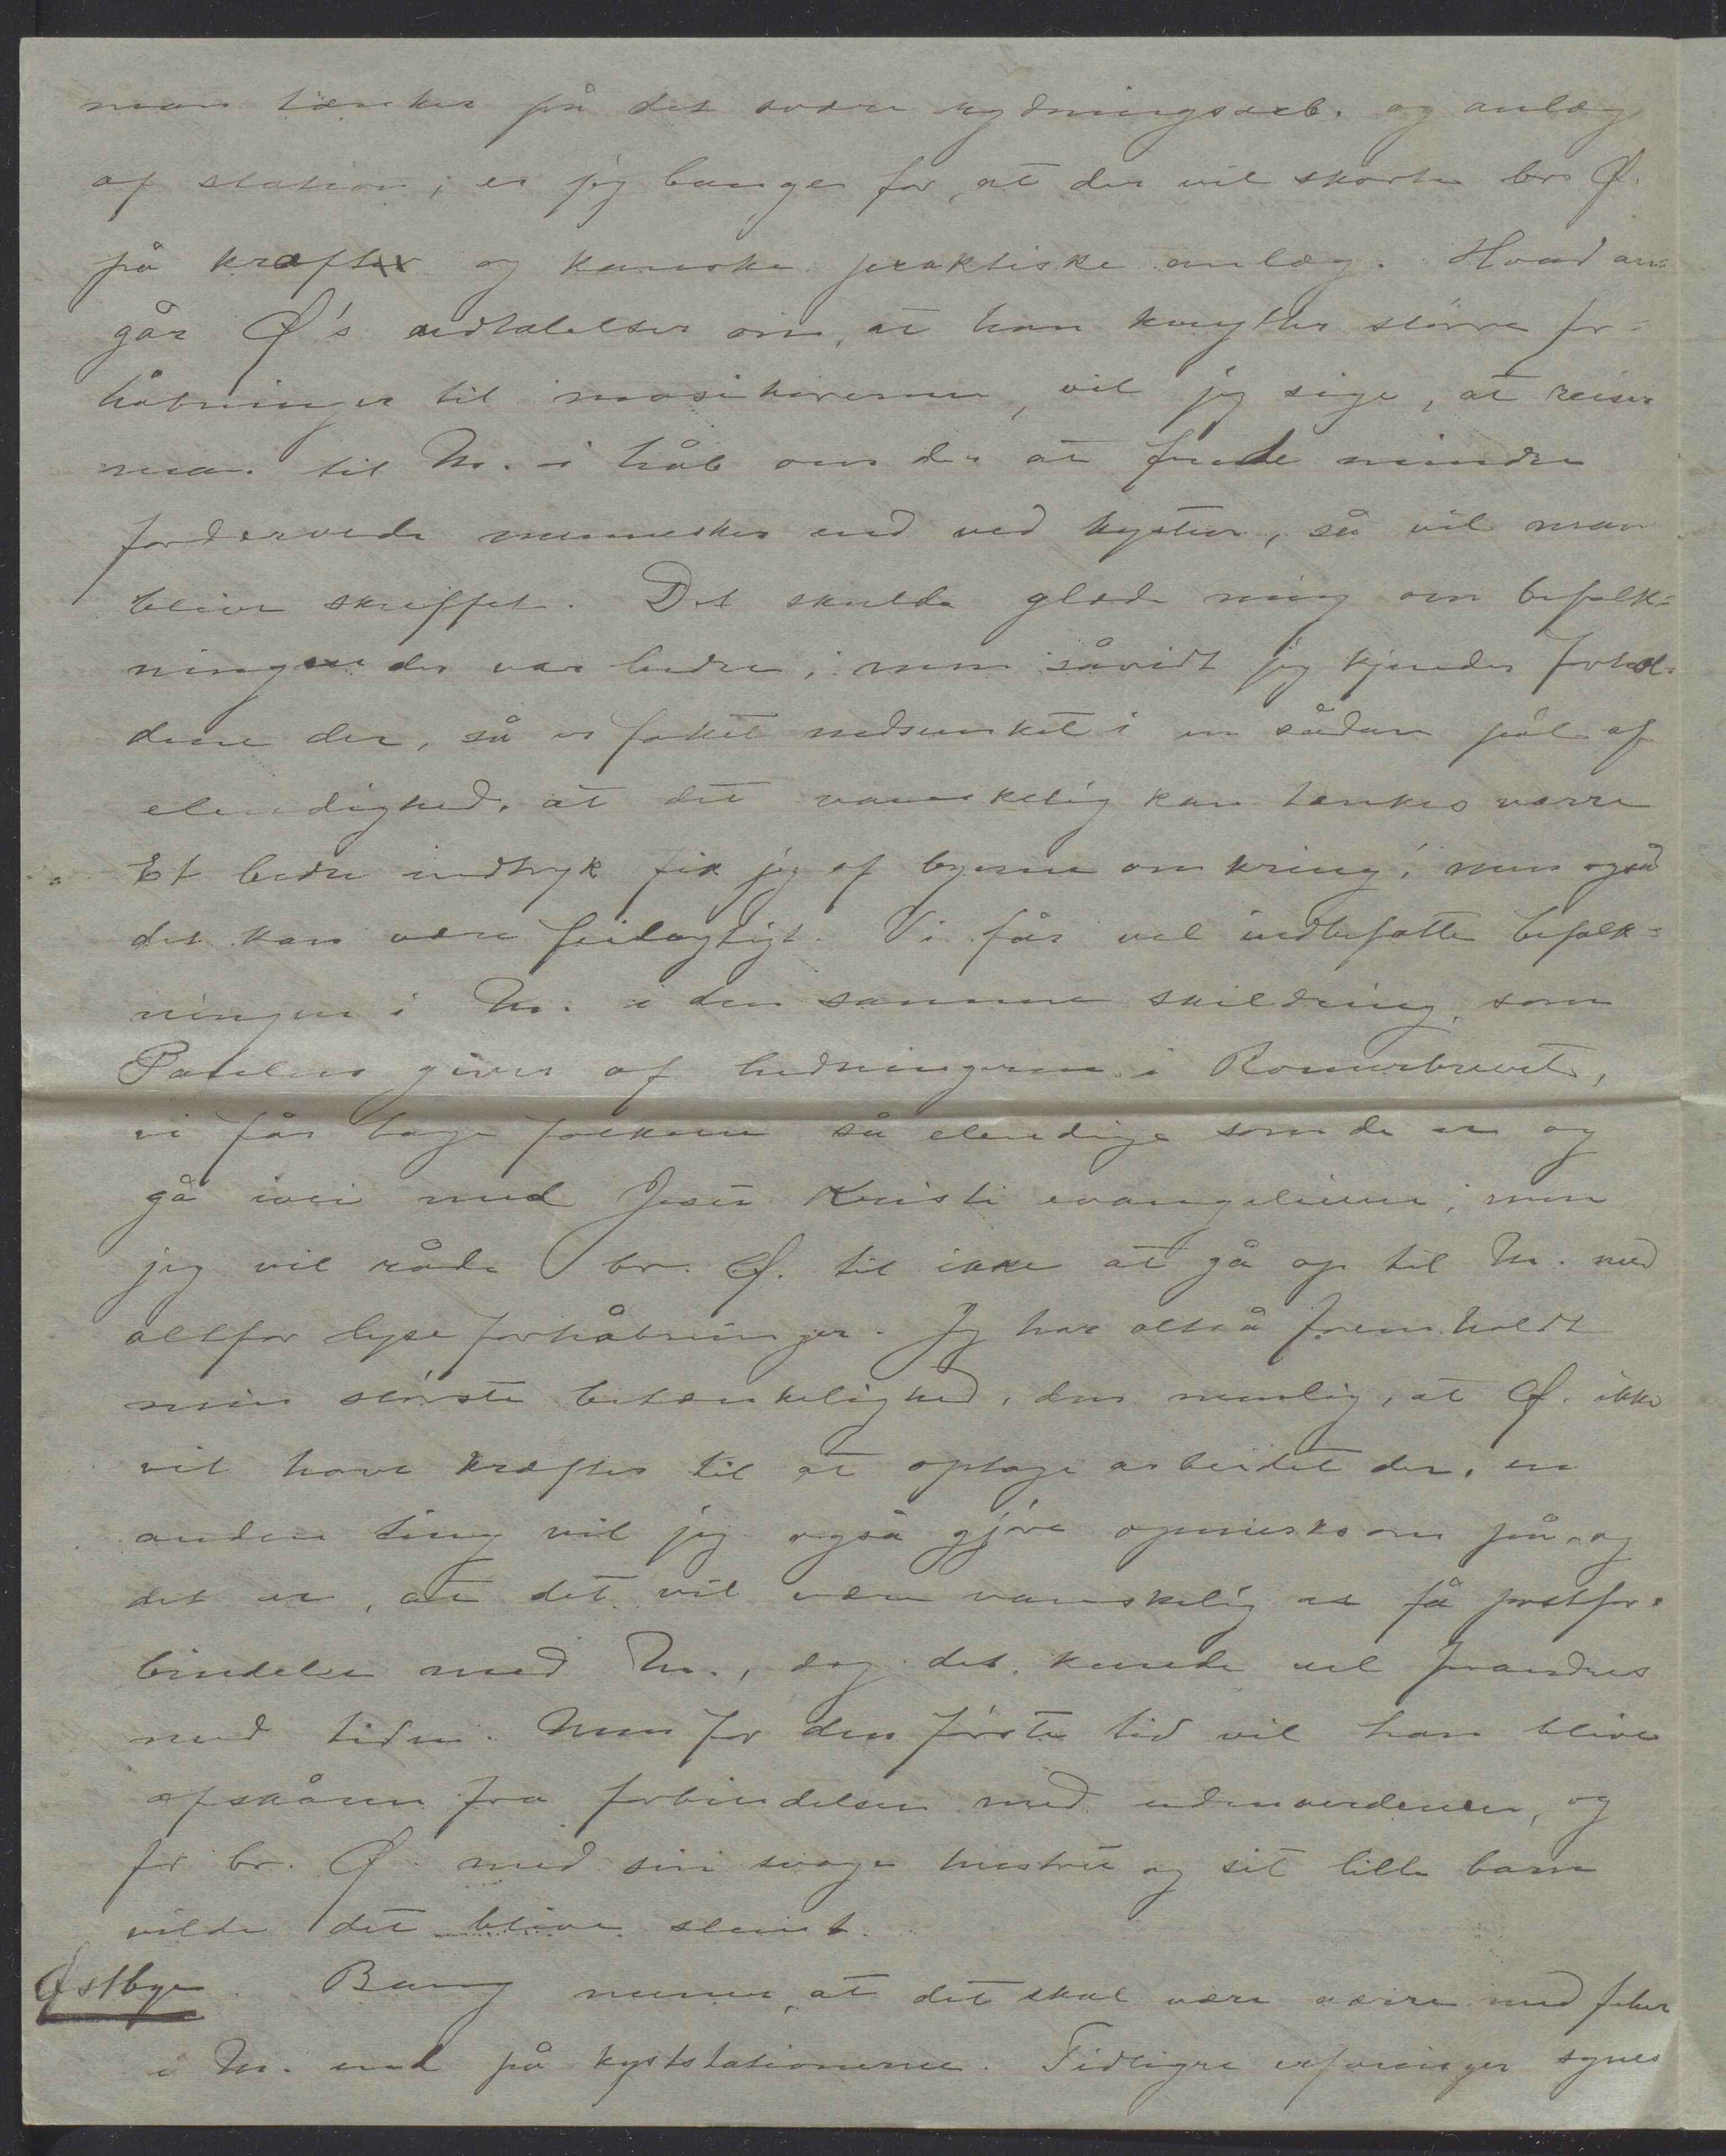 man tænker på det svære rydningsarb. og anlæg
af station; er jeg bange for, at der vil skorte br. Ø.
på kræfter og kanske praktiske anlæg. Hvad an=
går Ø's udtalelser om, at han knytter større for=
håbninger til masikorerne, vil jeg sige, at reiser
man til M. i håb om der at finde mindre
fordærvede mennesker end ved kysten, så vil man
blive skuffet. Det skulde glæde mig om befolk=
ningen der var bedre; men såvidt jeg kjender forhol=
dene der, så er folket nedsunket i en sådan pøl af
elendighed, at det vanskelig kan tænkes værre
Et bedre indtryk fik jeg af byerne omkring; men også
det kan være feilagtigt. Vi får vel indbefatte befolk=
ningen i M. i den samme skildring, som
Paulus giver af hedningerne i Romerbrevet,
vi får tage folkene så elendige som de er og
gå ivei med Jesu Kristi evangelium; men
jeg vil råde br. Ø. til ikke at gå op til M. med
altfor lyse forhåbninger. Jeg har altså fremholdt
min største betænkelighed, den nemlig, at Ø. ikke
vil have kræfter til at optage arbeidet der, en
anden ting vil jeg også gjøre opmerksom på, og
det er, at det vil være vanskelig at få postfor=
bindelse med M., dog det kunde vel forandres
med tiden. Men for den første tid vil han blive
afskåren fra forbindelsen med udenverdenen, og
for br. Ø. med sin svage hustru og sit lille barn
vilde det blive slemt.
Østbye. Bang mener, at det skal være værre med feber
i M. end på kyststationerne. Tidligre erfaringer synes